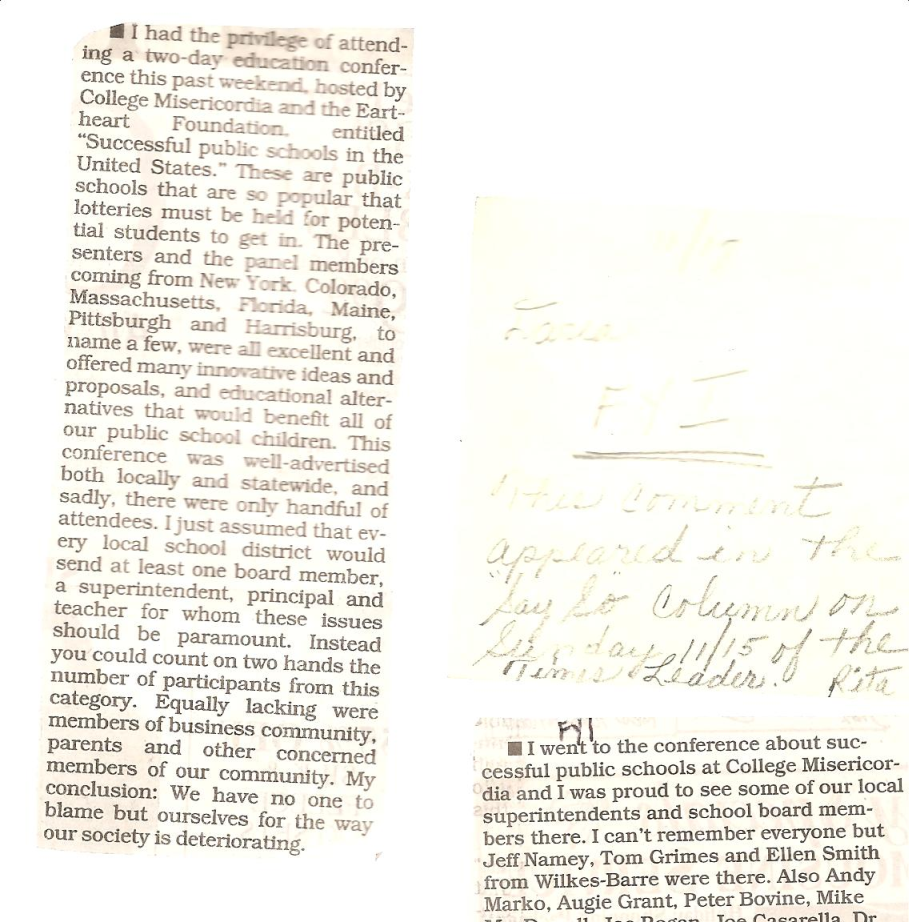 ■ I had the privilege of attend-
ing a two-day education confer-
ence this past weekend, hosted by
College Misericordia and the Eart-
heart Foundation, entitled
“Successful public schools in the
United States.” These are public
schools that are so popular that
lotteries must be held for poten-
tial students to get in. The pre-
senters and the panel members
coming from New York. Colorado,
Massachusetts, Florida, Maine,
Pittsburgh and Harrisburg, to
name a few, were all excellent and
offered many innovative ideas and
proposals, and educational alter-
natives that would benefit all of
our public school children. This
conference was well-advertised
both locally and statewide, and
sadly, there were only handful of
attendees. I just assumed that ev-
ery local school district would
send at least one board member,
a superintendent, principal and
teacher for whom these issues
should be paramount. Instead
you could count on two hands the
number of participants from this
category. Equally lacking were
members of business community,
parents and other concerned
members of our community. My
conclusion: We have no one to
blame but ourselves for the way
our society is deteriorating.
FYI
This comment
appeared in the
"Say So" Column on
Sunday 11/15 of the
Times Leader. Rita
FYI
■ I went to the conference about suc-
cessful public schools at College Misericor-
dia and I was proud to see some of our local
superintendents and school board mem-
bers there. I can't remember everyone but
Jeff Namey, Tom Grimes and Ellen Smith
from Wilkes-Barre were there. Also Andy
Marko, Augie Grant, Peter Bovine, Mike
Joe Rogan, Joe Casarella, Dr.